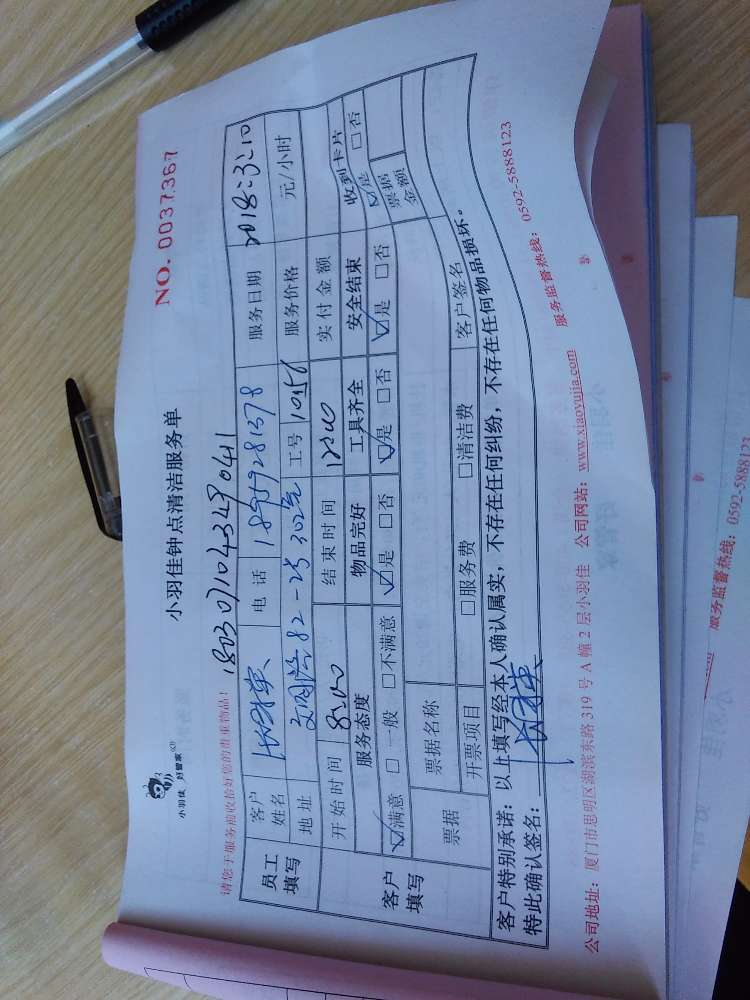 小羽佳 好管家
小羽佳钟点清洁服务单
NO. 0037367
请您于服务前收拾好您的贵重物品！
18030710434809041
员工填写
客户姓名
电话 18959281378
服务日期 2018.3.10
地址 82-25 302
工号 10156
服务价格 元/小时
客户填写
开始时间 8:00
结束时间 12:00
实付金额
服务态度 物品完好 工具齐全 安全结束 收到卡片
☑满意 □一般 □不满意 ☑是 □否 ☑是 □否 ☑是 □否 ☑是 □否
票据 票据名称 票据金额
开票项目 □服务费 □清洁费 客户签名
客户特别承诺：以上填写经本人确认属实，不存在任何纠纷，不存在任何物品损坏。
特此确认签名：
公司地址：厦门市思明区湖滨东路 319 号 A 幢 2 层小羽佳 公司网站：www.xiaoyujia.com 服务监督热线：0592-5888123
服务监督热线：0592-5888123